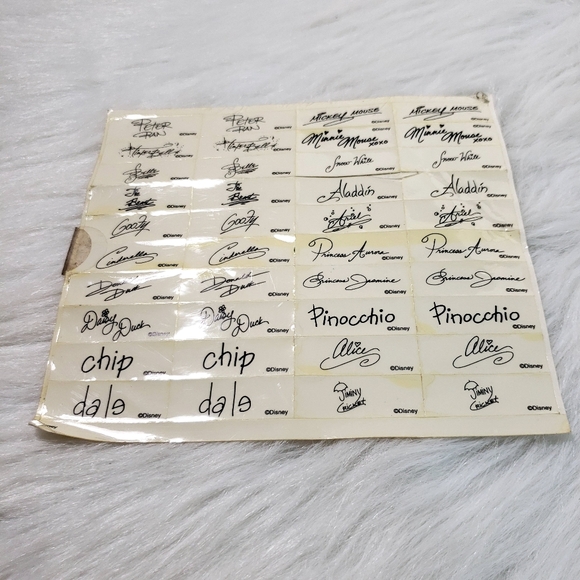 PETER PAN ©Disney PETER PAN ©Disney MICKEY MOUSE ©Disney MICKEY MOUSE ©Disney
Tinker Bell ©Disney Tinker Bell ©Disney Minnie Mouse xoxo ©Disney Minnie Mouse xoxo ©Disney
Belle ©Disney Belle ©Disney Snow White ©Disney Snow White ©Disney
The Beast ©Disney The Beast ©Disney Aladdin ©Disney Aladdin ©Disney
Goofy ©Disney Goofy ©Disney Ariel ©Disney Ariel ©Disney
Cinderella ©Disney Cinderella ©Disney Princess Aurora ©Disney Princess Aurora ©Disney
Donald Duck ©Disney Donald Duck ©Disney Princess Jasmine ©Disney Princess Jasmine ©Disney
Daisy Duck ©Disney Daisy Duck ©Disney Pinocchio ©Disney Pinocchio ©Disney
chip ©Disney chip ©Disney Alice ©Disney Alice ©Disney
dale ©Disney dale ©Disney JIMINY CRICKET ©Disney JIMINY CRICKET ©Disney